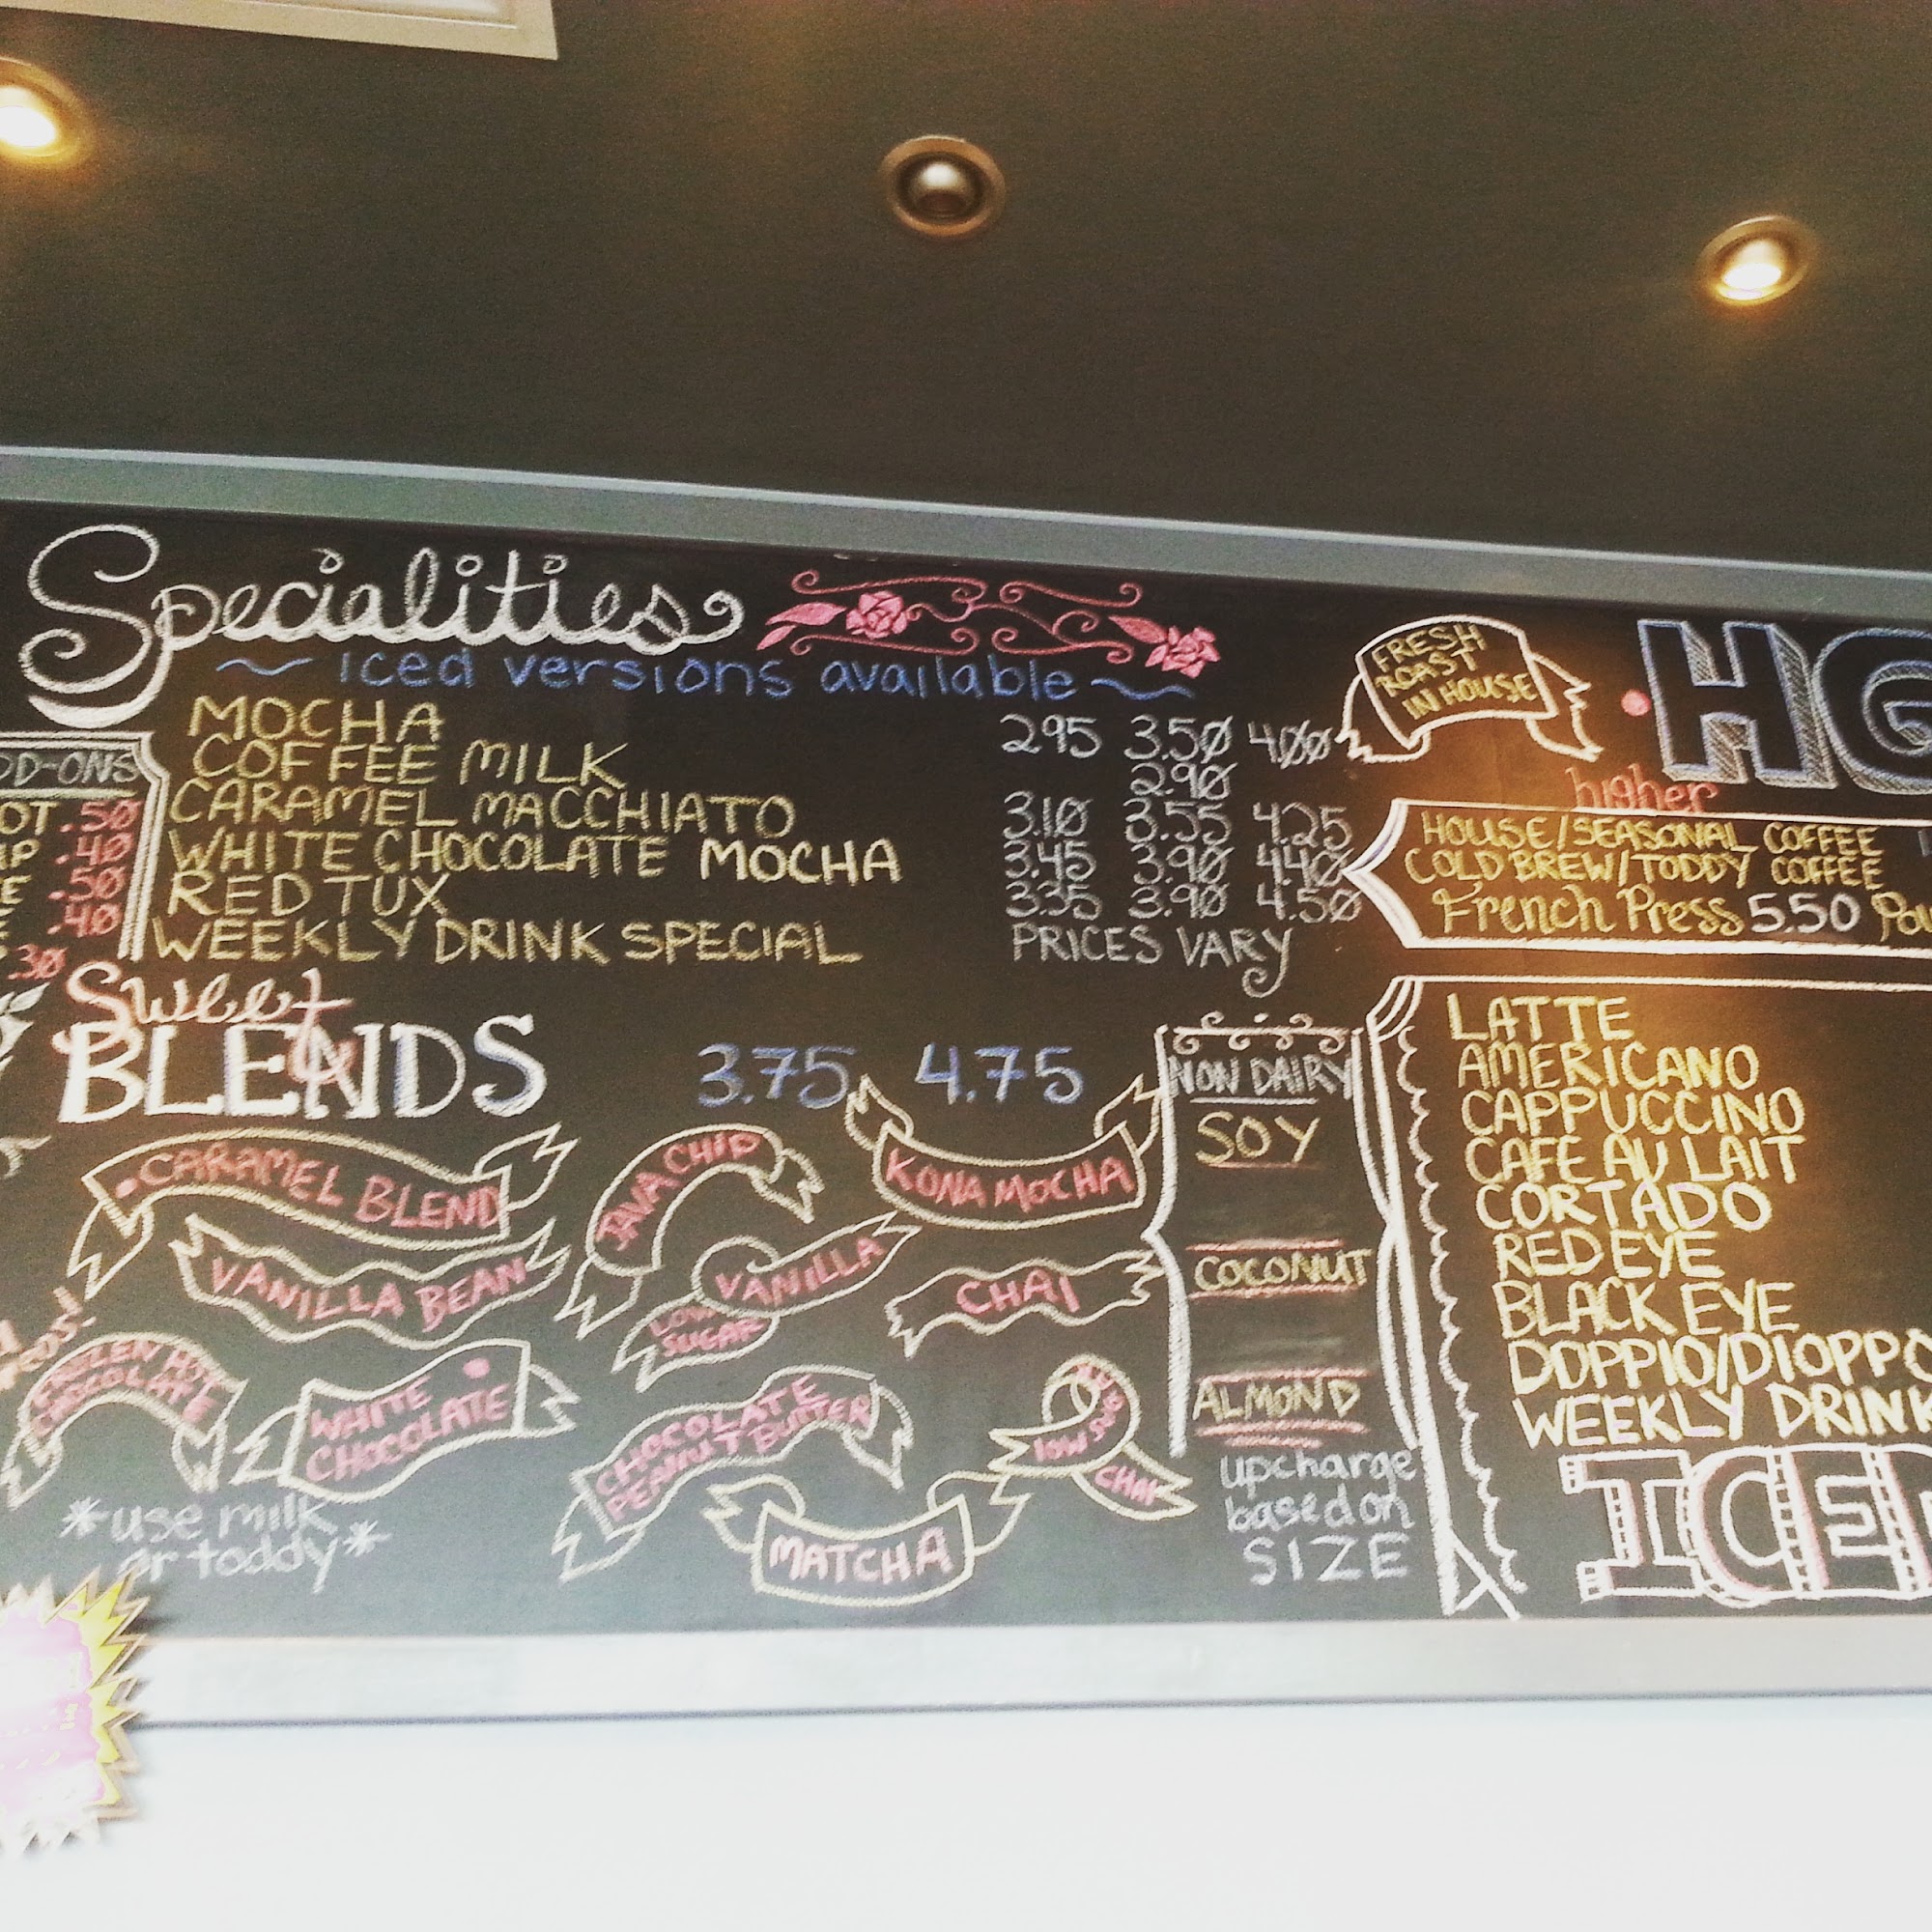 Specialities
~ iced versions available ~
MOCHA 2.95 3.50 4.00
COFFEE MILK 2.90
CARAMEL MACCHIATO 3.10 3.55 4.25
WHITE CHOCOLATE MOCHA 3.45 3.90 4.40
RED TUX 3.35 3.90 4.50
WEEKLY DRINK SPECIAL PRICES VARY
DD-ONS
OT .50
.40
E .50
.40
.30
Sweet
BLENDS 3.75 4.75
CARAMEL BLEND
JAVA CHIP
KONA MOCHA
VANILLA BEAN
LOW SUGAR
VANILLA
CHAI
CHOCOLATE
WHITE
CHOCOLATE
CHOCOLATE
PEANUT BUTTER
low sugar
CHAI
MATCHA
*use milk
or toddy*
NON DAIRY
SOY
COCONUT
ALMOND
upcharge
based on
SIZE
FRESH
ROAST
IN HOUSE
HO
higher
HOUSE/SEASONAL COFFEE
COLD BREW/TODDY COFFEE
French Press 5.50 Pou
LATTE
AMERICANO
CAPPUCCINO
CAFE AU LAIT
CORTADO
RED EYE
BLACK EYE
DOPPIO/DIOPPO
WEEKLY DRINK
ICED